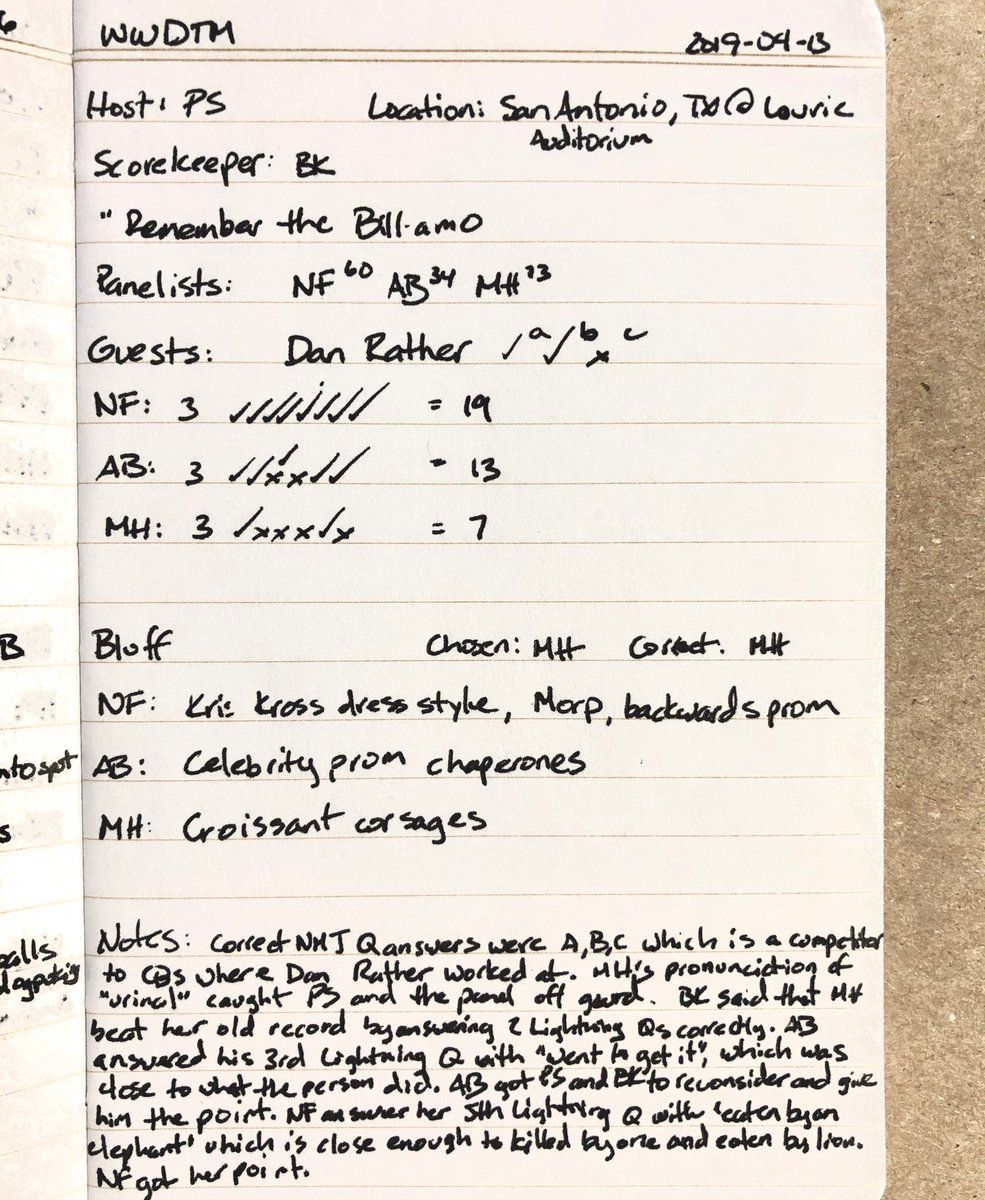 WWDTM 2019-04-13
Host: PS Location: San Antonio, TX @ Lauric
Auditorium
Scorekeeper: BK
"Remember the Bill-amo
Panelists: NF 60 AB 34 MH 73
Guests: Dan Rather ✓a ✓b x c
NF: 3 ✓✓✓✓✓✓✓✓ = 19
AB: 3 ✓✓✓xx✓✓ = 13
MH: 3 ✓xxx✓x = 7
B
Bluff Chosen: MH Correct: MH
NF: Kris Kross dress style, Morp, backwards prom
nto spot
AB: Celebrity prom chaperones
s
MH: Croissant corsages
Notes: Correct NMJ Q answers were A,B,C which is a competitor
to CBS where Dan Rather worked at. MH's pronunciation of
"urinal" caught PS and the panel off guard. BK said that MH
beat her old record by answering 2 Lightning Qs correctly. AB
answered his 3rd Lightning Q with "went to get it", which was
close to what the person did. AB got PS and BK to reconsider and give
him the point. NF answer her 5th Lightning Q with "eaten by an
elephant" which is close enough to killed by one and eaten by lion.
NF got her point.